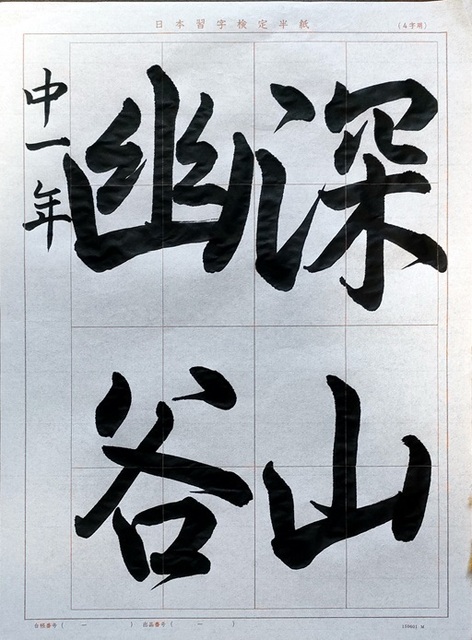 日本習字検定半紙
(4字用)
深山
幽谷
中一年
自帳番号( ー )
出品番号( ー )